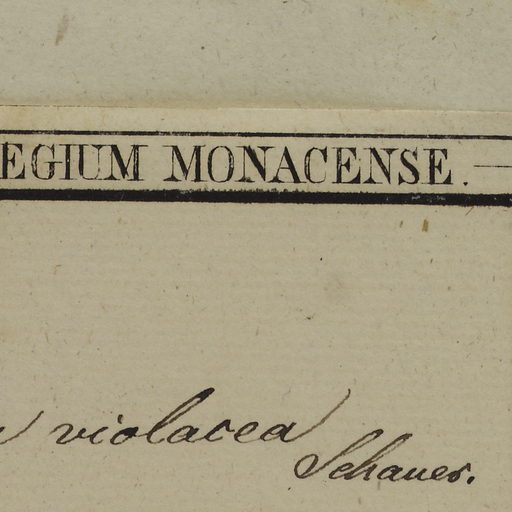 EGIUM MONACENSE. —
violacea
Schauer.